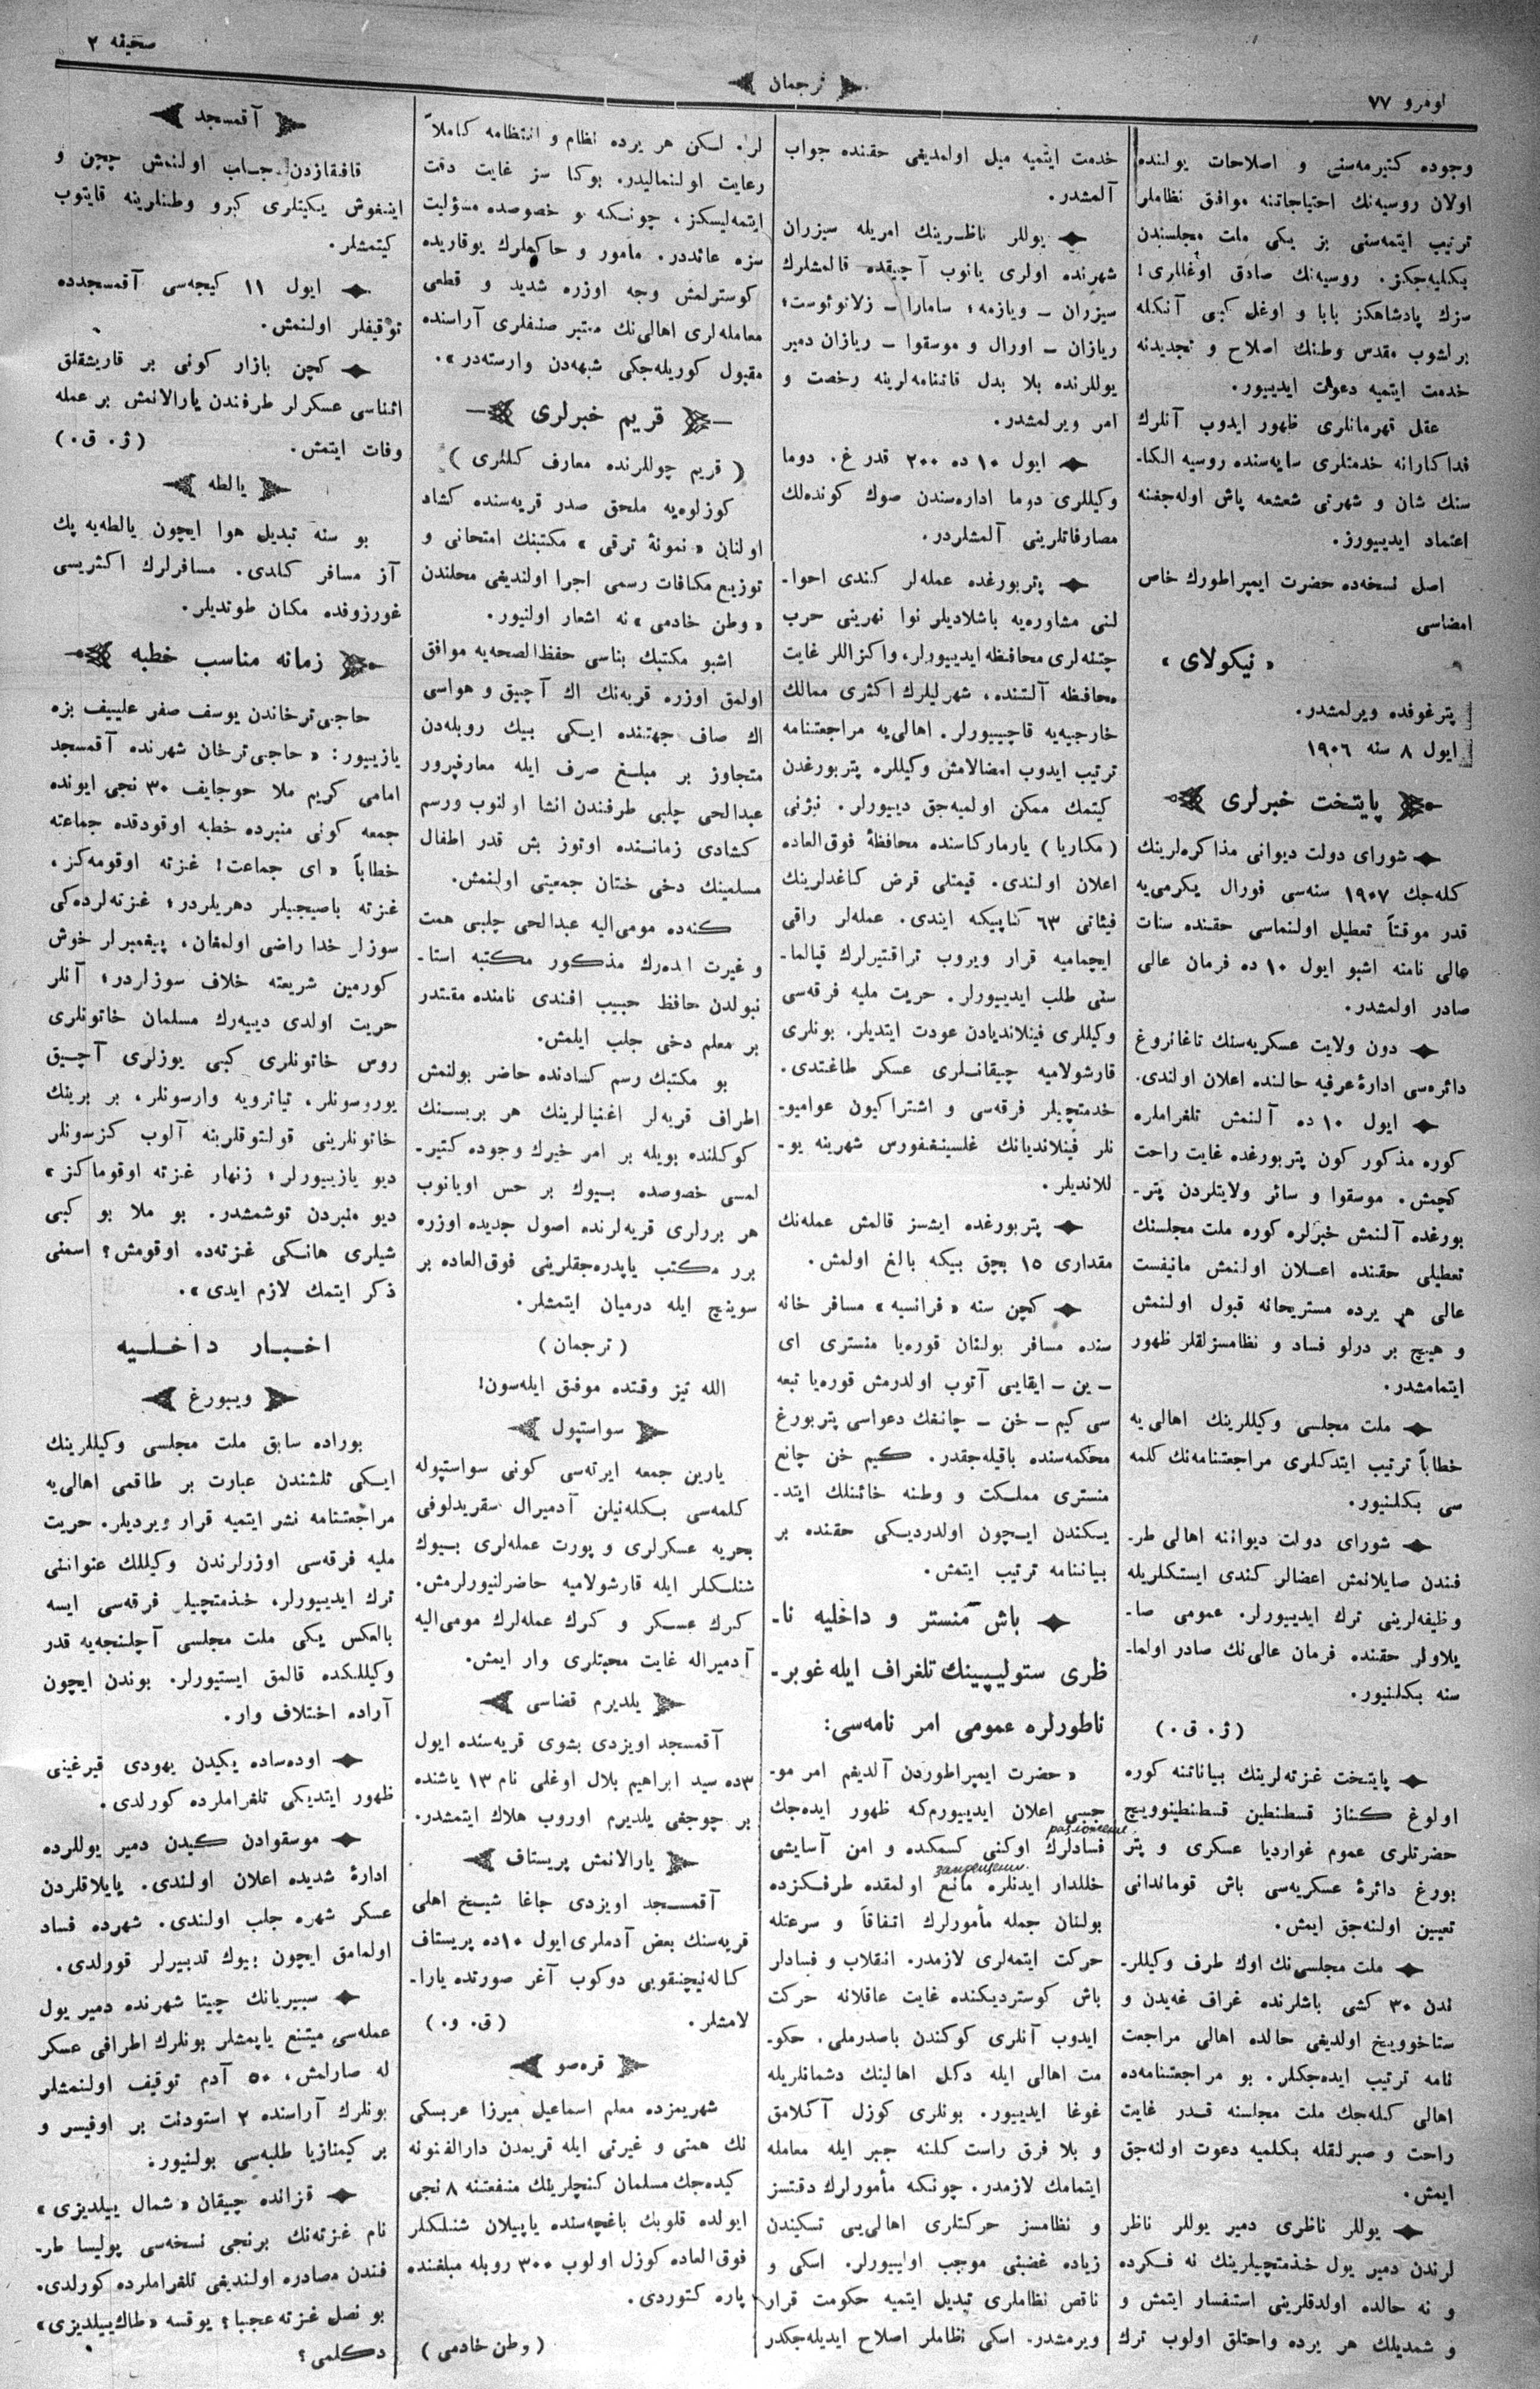 نومرو ٧٧
ترجمان
صحيفه ٢
وجوده كتيرمه‌سنى و اصلاحات يولنده
اولان روسيه‌نك احتياجاتنه موافق نظاملر
ترتيب ايتمه‌سنى بز يكى ملت مجلسندن
بكليه‌جكز. روسيه‌نك صادق اوغللرى!
سزك پادشاهكز بابا و اوغل كبى آنكله
برلشوب مقدس وطنك اصلاح و تجديدنه
خدمت ايتميه دعوت ايدييور.
عقل قهرمانلرى ظهور ايدوب آنلرك
فداكارانه خدمتلرى سايه‌سنده روسيه الكا-
سنك شان و شهرتى شعشعه پاش اوله‌جغنه
اعتماد ايدييورز.
اصل نسخه‌ده حضرت ايمپراطورك خاص
امضاسى
« نيكولاى »
پترغوفده ويرلمشدر.
ايول ٨ سنه ١٩٠٦
پايتخت خبرلرى
شوراى دولت ديوانى مذاكره‌لرينك
كله‌جك ١٩٠٧ سنه‌سى فورال يكرمى‌يه
قدر موقتاً تعطيل اولنماسى حقنده سنات
عالى نامنه اشبو ايول ١٠ ده فرمان عالى
صادر اولمشدر.
دون ولايت عسكريه‌سنك تاغانروغ
دائره‌سى ادارۀ عرفيه حالنده اعلان اولندى.
ايول ١٠ ده آلنمش تلغراملره
كوره مذكور كون پتربورغده غايت راحت
كچمش. موسقوا و سائر ولايتلردن پتر-
بورغده آلنمش خبرلره كوره ملت مجلسنك
تعطيلى حقنده اعلان اولنمش مانيفست
عالى هر يرده مستريحانه قبول اولنمش
و هيچ بر درلو فساد و نظامسزلقلر ظهور
ايتمامشدر.
ملت مجلسى وكيللرينك اهالى‌يه
خطاباً ترتيب ايتدكلرى مراجعتنامه‌نك كلمه
سى بكلنيور.
شوراى دولت ديواننه اهالى طر-
فندن صايلانمش اعضالر كندى ايستكلريله
وظيفه‌لرينى ترك ايدييورلر. عمومى صا-
يلاولر حقنده فرمان عالى‌نك صادر اولما-
سنه بكلنيور.
(ژ. ق.)
پايتخت غزته‌لرينك بياناتنه كوره
اولوغ كناز قسطنطين قسطنطينوويچ
حضرتلرى عموم غوارديا عسكرى و پتر
بورغ دائرۀ عسكريه‌سى باش قوماندانى
تعيين اولنه‌جق ايمش.
ملت مجلسى‌نك اوك طرف وكيللر-
ندن ٣٠ كشى باشلرنده غراف غه‌يدن و
ستاخوويخ اولديغى حالده اهالى مراجعت
نامه ترتيب ايده‌جكلر. بو مراجعتنامه‌ده
اهالى كله‌جك ملت مجلسنه قدر غايت
راحت و صبرلقله بكلميه دعوت اولنه‌جق
ايمش.
يوللر ناظرى دمير يوللر ناظر
لرندن دمير يول خذمتچيلرينك نه فكرده
و نه حالده اولدقلرينى استفسار ايتمش و
و شمديلك هر يرده واحتلق اولوب ترك
خدمت ايتميه ميل اولمديغى حقنده جواب
آلمشدر.
يوللر ناظرينك امريله سيزران
شهرنده اولرى يانوب آچيقده قالمشلرك
سيزران – ويازمه؛ سامارا – زلاتوئوست؛
ريازان – اورال و موسقوا – ريازان دمير
يوللرنده بلا بدل فائنامه‌لرينه رخصت و
امر ويرلمشدر.
ايول ١٠ ده ٢٠٠ قدر غ. دوما
وكيللرى دوما اداره‌سندن صوك كونده‌لك
مصارفاتلرينى آلمشلردر.
پتربورغده عمله‌لر كندى احوا-
لنى مشاوره‌يه باشلاديلر نوا نهرينى حرب
چتنه‌لرى محافظه ايدييورلر، واكزاللر غايت
محافظه آلتنده، شهرليلرك اكثرى ممالك
خارجيه‌يه قاچييورلر. اهالى‌يه مراجعتنامه
ترتيب ايدوب امضالامش وكيللره پتربورغدن
كيتمك ممكن اولميه‌جق دييورلر. نيژنى
( مكاريا ) يارماركاسنده محافظۀ فوق‌العاده
اعلان اولندى. قيمتلى قرض كاغدلرينك
فيئاتى ٦٣ كاپيكه ايندى. عمله‌لر راقى
ايچماميه قرار ويروب تراقتيرلرك قپالما-
سنى طلب ايدييورلر. حريت مليه فرقه‌سى
وكيللرى فينلاندياد‌ن عودت ايتديلر. بونلرى
قارشولاميه چيقانلرى عسكر طاغتدى.
خدمتچيلر فرقه‌سى و اشتراكيون عواميو-
نلر فينلانديانك غلسينغفورس شهرينه يو-
للانديلر.
پتربورغده ايشسز قالمش عمله‌نك
مقدارى ١٥ بچق بيكه بالغ اولمش.
كچن سنه « فرانسيه » مسافر خانه
سنده مسافر بولنان قوره‌يا منسترى اى
- ين - ايقايى آتوب اولدرمش قوره‌يا تبعه
سى كيم - خن - چانغك دعواسى پتربورغ
محكمه‌سنده باقيله‌جقدر. كيم خن چانغ
منسترى مملكت و وطنه خائنلك ايتد-
يكندن ايچون اولدرديكى حقنده بر
بياننامه ترتيب ايتمش.
باش منستر و داخليه نا-
ظرى ستوليپينك تلغراف ايله غوبر-
ناطورلره عمومى امر نامه‌سى:
« حضرت ايمپراطوردن آلديغم امر مو-
جببى اعلان ايدييورم‌كه ظهور ايده‌جك
فسادلرك اوكنى كسمكده و امن آسايشى
خللدار ايدنلره مانع اولمقده طرفكزده
بولنان جمله مأمورلرك اتفاقاً و سرعتله
حركت ايتمه‌لرى لازمدر. انقلاب و فسادلر
باش كوسترديكنده غايت عاقلانه حركت
ايدوب آنلرى كوكندن باصدرملى. حكو-
مت اهالى ايله دكل اهالينك دشمانلريله
غوغا ايدييور. بونلرى كوزل آكلامق
و بلا فرق راست كلنه جبر ايله معامله
ايتمامك لازمدر. چونكه مأمورلرك دقتسز
و نظامسز حركتلرى اهالى‌يى تسكيندن
زياده غضبنى موجب اولييورلر. اسكى و
ناقص نظاملرى تبديل ايتميه حكومت قرار
ويرمشدر. اسكى نظاملر اصلاح ايديله‌جكدر
لر. لسكن هر يرده نظام و انتظامه كاملاً
رعايت اولنماليدر. بوكا سز غايت دقت
ايتمه‌ليسكز، چونكه بو خصوصده مسؤليت
سزه عائددر. مامور و حاكملرك يوقاريده
كوسترلمش وجه اوزره شديد و قطعى
معامله‌لرى اهالى‌نك معتبر صنفلرى آراسنده
مقبول كوريله‌جكى شبهه‌دن وارسته‌در ».
قريم خبرلرى
( قريم چوللرنده معارف كللرى )
كوزلوه‌يه ملحق صدر قريه‌سنده كشاد
اولنان « نمونۀ ترقى » مكتبنك امتحانى و
توزيع مكافات رسمى اجرا اولنديغى محلندن
« وطن خادمى » نه اشعار اولنيور.
اشبو مكتبك بناسى حفظ‌الصحه‌يه موافق
اولمق اوزره قريه‌نك اك آچيق و هواسى
اك صاف جهتنده ايكى بيك روبله‌دن
متجاوز بر مبلغ صرف ايله معارفپرور
عبدالحى چلبى طرفندن انشا اولنوب ورسم
كشادى زمانسنده اوتوز بش قدر اطفال
مسلمينك دخى ختان جمعيتى اولنمش.
كنه‌ده مومى‌اليه عبدالحى چلبى همت
و غيرت ايده‌رك مذكور مكتبه استا-
نبولدن حافظ حبيب افندى نامنده مقتدر
بر معلم دخى جلب ايلمش.
بو مكتبك رسم كشادنده حاضر بولنمش
اطراف قريه‌لر اغنيالرينك هر بريسنك
كوكلنده بويله بر امر خيرك وجوده كتير-
لمسى خصوصده بيوك بر حس اويانوب
هر برلرى قريه‌لرنده اصول جديده اوزره
برر مكتب ياپدره‌جقلرينى فوق‌العاده بر
سوينج ايله درميان ايتمشلر.
( ترجمان )
الله تيز وقتده موفق ايله‌سون!
سواستپول
يارين جمعه ايرته‌سى كونى سواستپوله
كلمه‌سى بكله‌نيلن آدميرال سقريدلوفى
بحريه عسكرلرى و پورت عمله‌لرى بيوك
شنلكلر ايله قارشولاميه حاضرلنيورلرمش.
كرك عسكر و كرك عمله‌لرك مومى‌اليه
آدميراله غايت محبتلرى وار ايمش.
يلديرم قضاسى
آقمسجد اويزدى بشوى قريه‌سنده ايول
٣ده سيد ابراهيم بلال اوغلى نام ١٣ ياشنده
بر چوجغى يلديرم اوروب هلاك ايتمشدر.
يارالانمش پريستاف
آقمسجد اويزدى جاغا شيخ اهلى
قريه‌سنك بعض آدملرى ايول ١٠ده پريستاف
كاله‌نيچنقوبى دوكوب آغر صورتده يارا-
لامشلر. (ق. و.)
قره‌صو
شهريمزده معلم اسماعيل ميرزا عربسكى
نك همتى و غيرتى ايله قريمدن دارالفنونه
كيده‌جك مسلمان كنچلرينك منفعتنه ٨ نجى
ايولده قلوبك باغچه‌سنده ياپيلان شنلكلر
فوق‌العاده كوزل اولوب ٣٠٠ روبله مبلغنده
پاره كتوردى.
( وطن خادمى )
آقمسجد
قافقازدن جلب اولنمش چچن و
اينغوش يكيتلرى كيرو وطنلرينه قايتوب
كيتمشلر.
ايول ١١ كيجه‌سى آقمسجدده
توقيفلر اولنمش.
كچن بازار كونى بر قاريشقلق
اثناسى عسكرلر طرفندن يارالانمش بر عمله
وفات ايتمش. (ژ. ق.)
يالطه
بو سنه تبديل هوا ايچون يالطه‌يه پك
آز مسافر كلدى. مسافرلرك اكثريسى
غورزوفده مكان طوتديلر.
زمانه مناسب خطبه
حاجى‌ترخاندن يوسف صفر علييف بزه
يازييور: « حاجى‌ترخان شهرنده آقمسجد
امامى كريم ملا حوجايف ٣٠ نجى ايونده
جمعه كونى منبرده خطبه اوقودقده جماعته
خطاباً « اى جماعت! غزته اوقومه‌كز،
غزته باصيجيلر دهريلردر؛ غزته‌لرده‌كى
سوزلر خدا راضى اولمغان، پيغمبرلر خوش
كورمين شريعته خلاف سوزلردر؛ آنلر
حريت اولدى دييه‌رك مسلمان خاتونلرى
روس خاتونلرى كبى يوزلرى آچيق
يوروسونلر، تياترويه وارسونلر، بر برينك
خاتونلرينى قولتوقلرينه آلوب كزسونلر
ديو يازييورلر؛ زنهار غزته اوقوماكز »
ديو منبردن توشمشدر. بو ملا بو كبى
شيلرى هانكى غزته‌ده اوقومش؟ اسمنى
ذكر ايتمك لازم ايدى ».
اخبار داخليه
ويبورغ
بوراده سابق ملت مجلسى وكيللرينك
ايكى ثلثندن عبارت بر طاقمى اهالى‌يه
مراجعتنامه نشر ايتميه قرار ويرديلر. حريت
مليه فرقه‌سى اوزرلرندن وكيللك عنواننى
ترك ايدييورلر، خذمتچيلر فرقه‌سى ايسه
بالعكس يكى ملت مجلسى آچلنجه‌يه قدر
وكيللكده قالمق ايستيورلر. بوندن ايچون
آراده اختلاف وار.
اوده‌ساده يكيدن يهودى قيرغينى
ظهور ايتديكى تلغراملرده كورلدى.
موسقوادن كيدن دمير يوللرده
ادارۀ شديده اعلان اولندى. يايلاقلردن
عسكر شهره جلب اولندى. شهرده فساد
اولمامق ايچون بيوك تدبيرلر قورلدى.
سيبيريانك چيتا شهرنده دمير يول
عمله‌سى ميتنغ ياپمشلر بونلرك اطرافى عسكر
له صارلمش، ٥٠ آدم توقيف اولنمشلر
بونلرك آراسنده ٢ استودنت بر اوفيسر و
بر كيمنازيا طلبه‌سى بولنيور.
قزانده چيقان « شمال ييلديزى »
نام غزته‌نك برنجى نسخه‌سى پوليسا طر-
فندن مصادره اولنديغى تلغراملرده كورلدى.
بو نصل غزته عجبا؟ يوقسه « طاك ييلديزى »
دكلمى؟